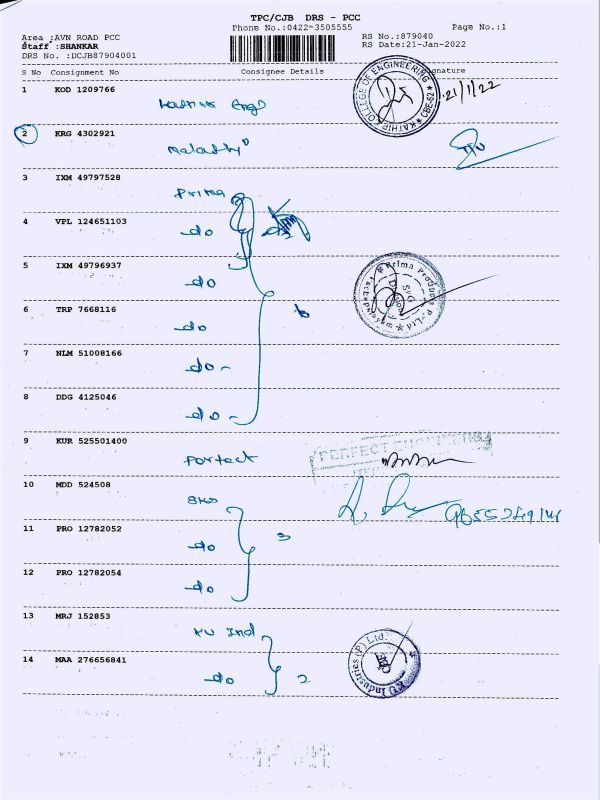 TPC/CJB DRS - PCC
Phone No.:0422-3505555
Page No.:1
Area :AVN ROAD PCC
RS No.:879040
Staff :SHANKAR
RS Date:21-Jan-2022
DRS No. :DCJB87904001
S No Consignment No Consignee Details Signature
1 KOD 1209766
KATHIR COLLEGE OF ENGINEERING ★ CBE-62 ★
21/1/22
2 KRG 4302921
Malathy
3 IXM 49797528
Prima
4 VPL 124651103
do
5 IXM 49796937
do
Prima Products P Ltd
6 TRP 7668116
do
7 NLM 51008166
do
8 DDG 4125046
do
9 KUR 525501400
Perfect
PERFECT ENGINEERS
10 MDD 524508
SKS
11 PRO 12782052
do
3
12 PRO 12782054
do
13 MRJ 152853
KU Ind
KU Industries (P) Ltd.
14 MAA 276656841
do
2